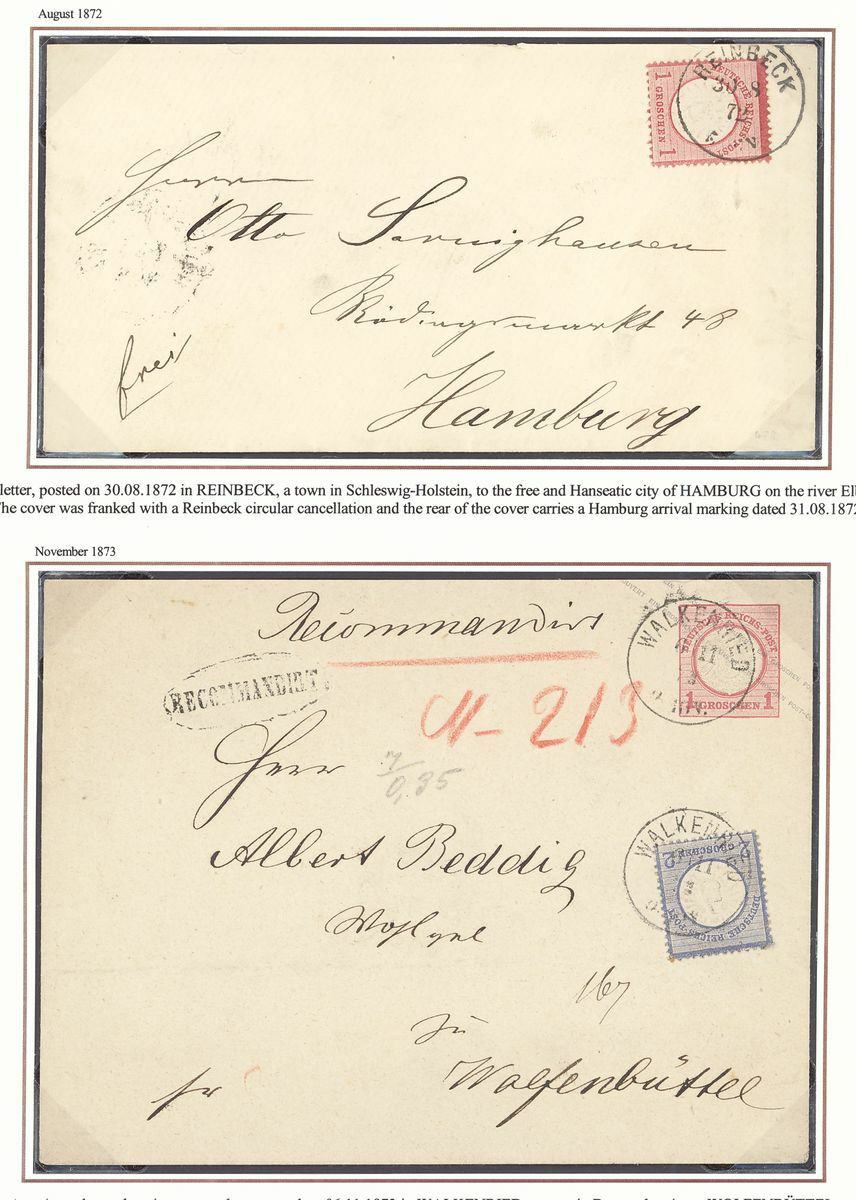 August 1872
REINBECK
30 8
72
DEUTSCHE REICHS-POST
1 GROSCHEN 1
Herrn
Otto Sarnighausen
Rödingsmarkt 48
Hamburg
frei
letter, posted on 30.08.1872 in REINBECK, a town in Schleswig-Holstein, to the free and Hanseatic city of HAMBURG on the river El
The cover was franked with a Reinbeck circular cancellation and the rear of the cover carries a Hamburg arrival marking dated 31.08.1872
November 1873
Recommandirt
WALKENRIED
11
DEUTSCHE REICHS-POST
1 GROSCHEN 1
RECOMMANDIRT.
213
Herr
7
0,35
Albert Beddig
WALKENRIED
11
2 GROSCHEN 2
DEUTSCHE REICHS-POST
Wohlgeb
167
zu
Wolfenbüttel
fr